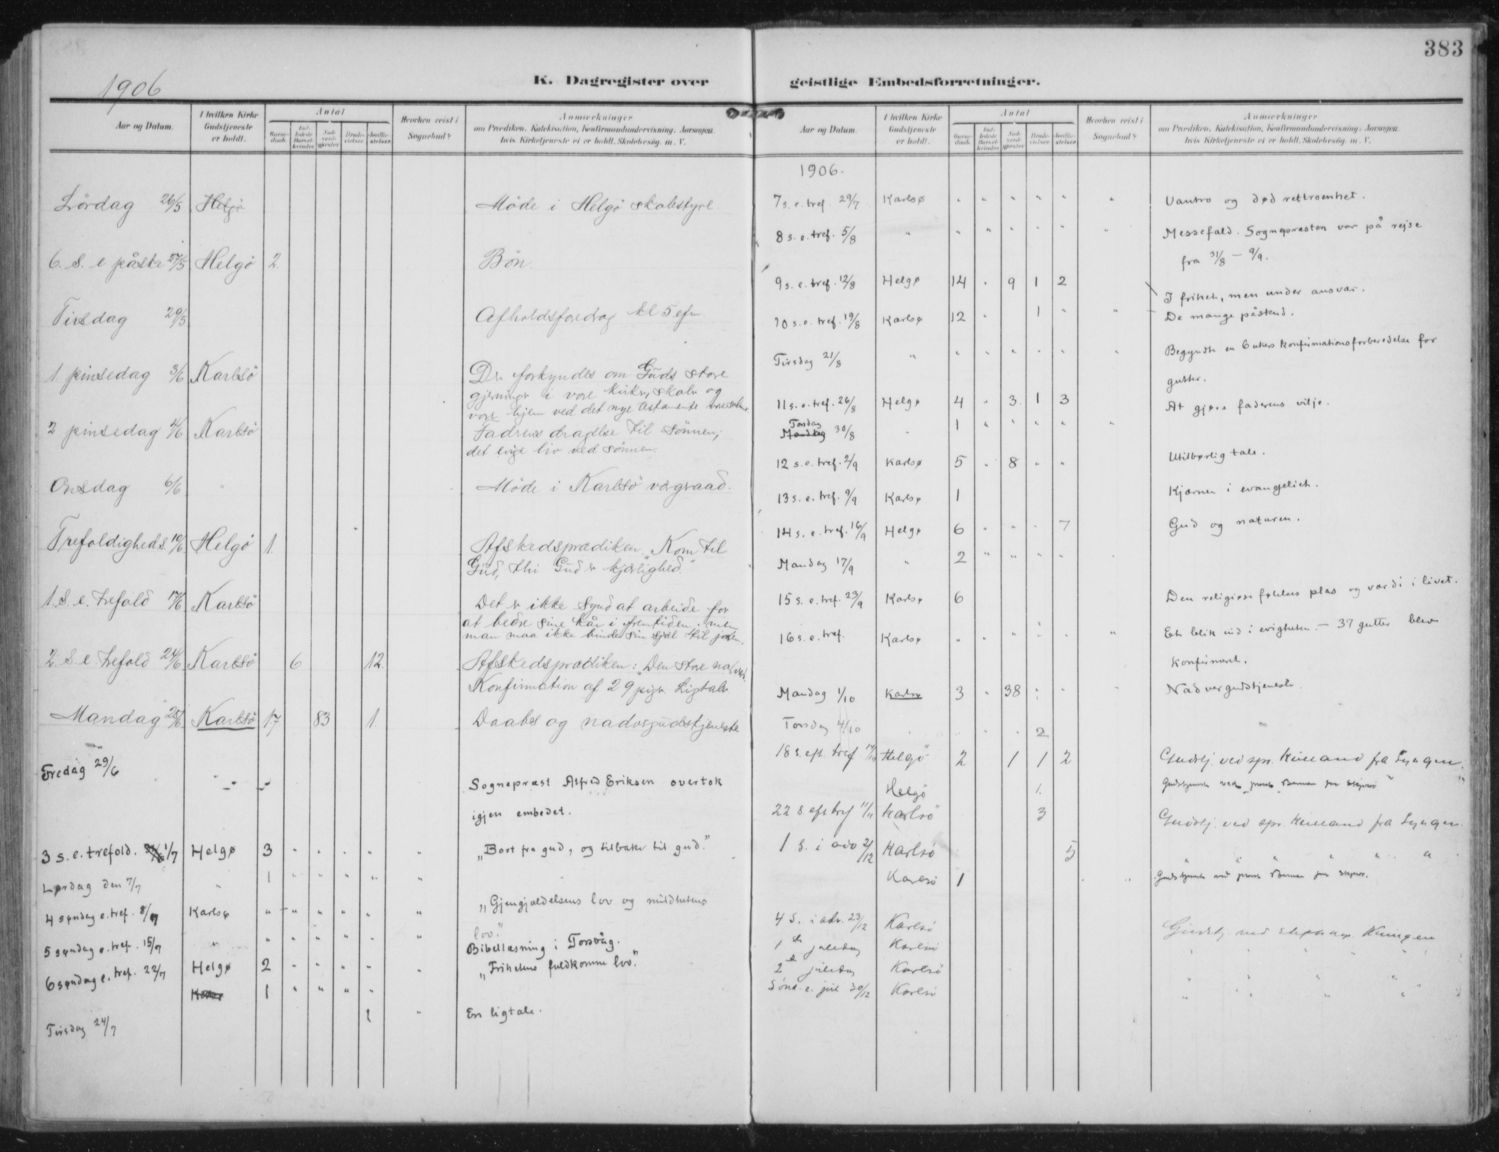 383
1906
K. Dagregister over
geistlige Embedsforretninger.
Aar og Datum.
I hvilken Kirke
Gudstjeneste
er holdt.
Antal
Hvorhen reist i
Sognebud?
Anmerkninger
om Prædiken, Katekisation, Konfirmandundervisning; Aarsagen,
hvis Kirketjeneste ei er holdt, Skolebesøg, m. V.
Lördag 26/5 Helgö Møde i Helgö skolestyre
6. S. e påske 27/5 Helgö 2 Bön.
Tirsdag 29/5 Afholdsforedrag kl 5 efm
1 pinsedag 3/6 Karlsö Der forkyndes om Guds store
gjerninger i vore kirker, skoler og
vore hjem ved det nye testamente
2 pinsedag 4/6 Karlsö Fadrens dragelse til Sønnen;
det evige liv ved sønnen
Onsdag 6/6 Møde i Karlsö vergeraad.
Trefoldigheds. 10/6 Helgö 1 Afskedsprædiken "Kom til
Gud, thi Gud er kjærlighed."
1 S. e. trefold 17/6 Karlsö Det er ikke Synd at arbeide for
at bedre sine kår i fremtiden, men
man maa ikke binde sin sjæl til jorden.
2 S e trefold 24/6 Karlsö 6 12 Afskedsprædiken: "Den store nadver".
Konfirmation af 29 piger. Ligtale
Mandag 25/6 Karlsö 17 83 1 Daabs og nadvergudstjeneste
Fredag 29/6 Sogneprest Alfred Eriksen overtok
igjen embedet.
3 s. e. trefold. 1/7 Helgø 3 "Bort fra gud, og tilbake til gud."
Lørdag den 7/7 " 1 " " " "
4 søndag e. tref. 8/7 Karlsø " " " " " " "Gjengjældelsens lov og mildhetens
lov."
5 søndag e. tref. 15/7 " " " " " " " Bibellæsning i Torsvåg.
6 søndag e. tref. 22/7 Helgø 2 " " " " "Frihetens fuldkomne lov."
1 " " "
Tirsdag 24/7 1 " En ligtale.
Aar og Datum.
I hvilken Kirke
Gudstjeneste
er holdt.
Antal
Hvorhen reist i
Sognebud?
Anmerkninger
om Prædiken, Katekisation, Konfirmandundervisning; Aarsagen,
hvis Kirketjeneste ei er holdt, Skolebesøg, m. V.
1906.
7 s. e. tref. 29/7 Karlsø " " " " " " Vantro og død rettroenhet.
8 s. e. tref. 5/8 " " " " " " " Messefald. Sognepresten var på rejse
fra 31/8 – 9/9.
9 s. e. tref. 12/8 Helgø 14 " 9 1 2 I frihet, men under ansvar.
10 s. e. tref. 19/8 Karlsø 12 " 1 " " De mange påstand.
Tirsdag 21/8 " " " " " " " Begyndte en 6 ukers konfirmationsforberedelse for
gutter.
11 s. e. tref. 26/8 Helgø 4 " 3 1 3 At gjøre faderens vilje.
Torsdag 30/8 " 1 " " " " "
12 s. e. tref. 2/9 Karlsø 5 " 8 " " Utilbørlig tale.
13 s. e. tref. 9/9 Karlsø 1 Kjærnen i evangeliet.
14 s. e. tref. 16/9 Helgø 6 " " " 7 Gud og naturen.
Mandag 17/9 " 2 " " " "
15 s. e. tref. 23/9 Karlsø 6 Den religiøse følelses plas og værdi i livet.
16 s. e. tref. Karlsø " " " " " " Et blik ind i evigheten. – 37 gutter blev
konfirmert.
Mandag 1/10 Karlsø 3 " 38 " " Nadvergudstjeneste.
Torsdag 4/10 " " " 2 "
18 s. eft. tref Helgö 2 1 1 2 Gudstj. ved spr. Kielland fra Lyngen.
Helgö 1
22 s eft tref 11/11 Karlsö 3 Gudstj. ved spr. Kielland fra Lyngen.
1 s. i adv 2/12 Karlsö 5 " " " " "
Karlsö 1
4 S. i adv. 23/12 Karlsö
1ste juledag Karlsö " " " "
2den juledag Karlsö
Sönd. e. jul 30/12 Karlsö " " " "